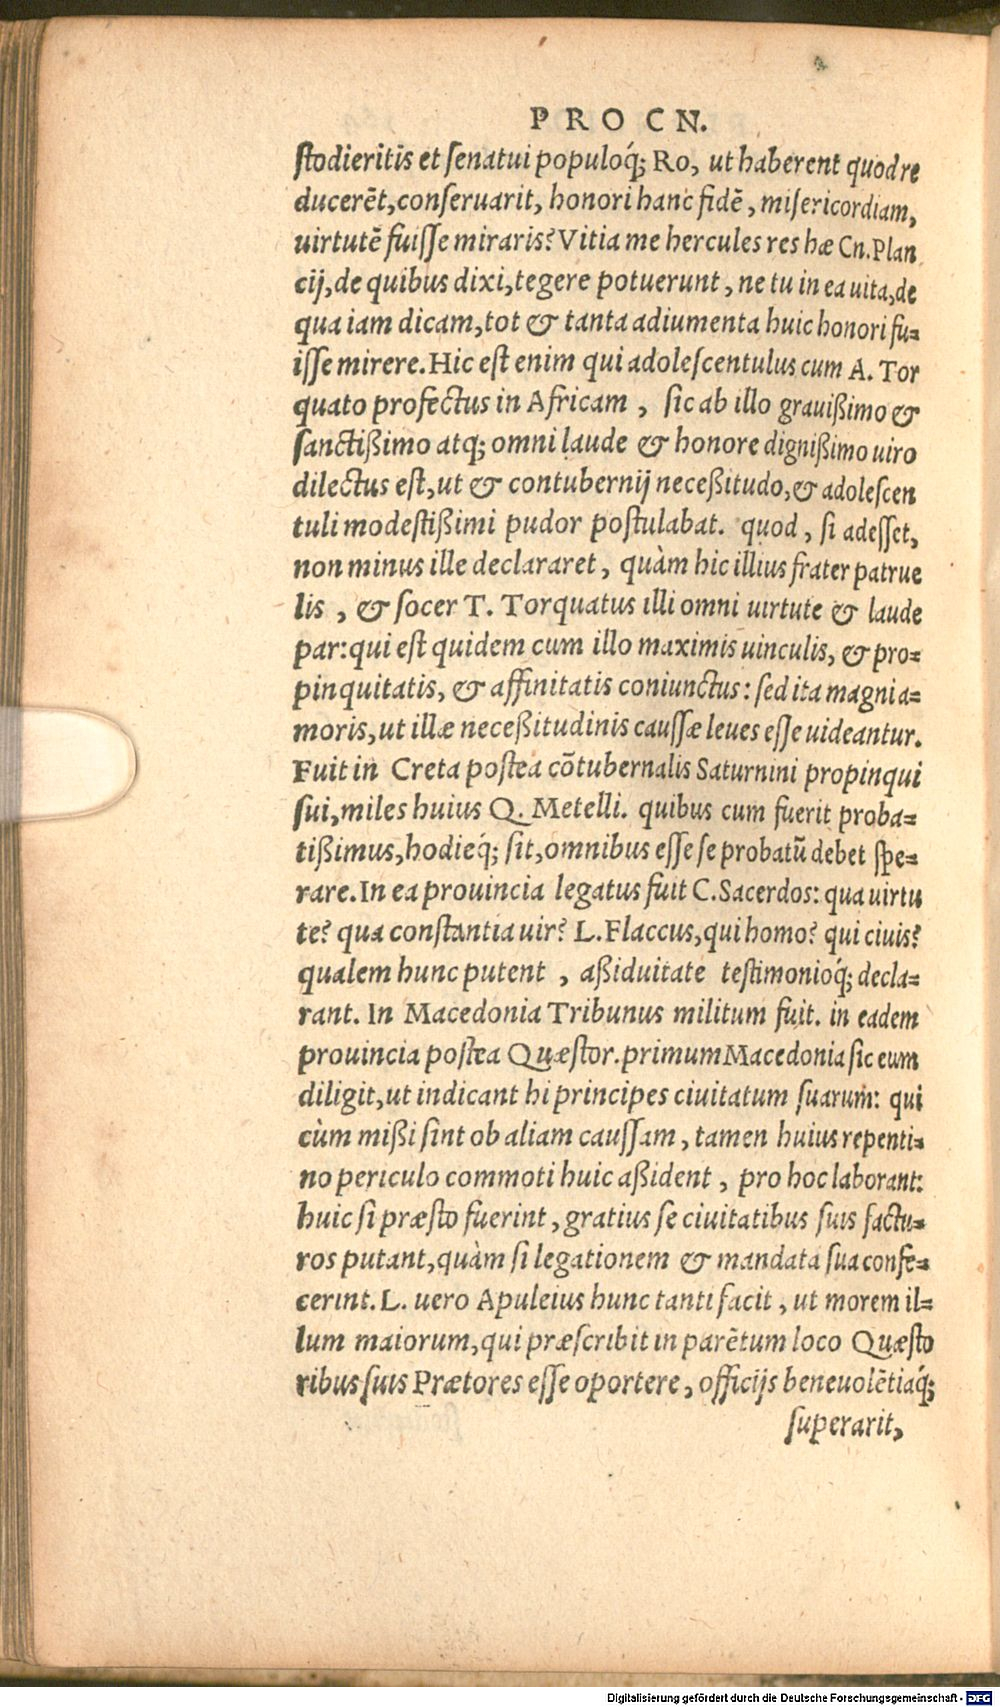 PRO CN.
stodieritis et senatui populoq́; Ro, ut haberent quod re
ducerēt, conseruarit, honori hanc fidē, misericordiam,
uirtutē fuisse miraris? Vitia me hercules res hæ Cn. Plan
cij, de quibus dixi, tegere potuerunt, ne tu in ea uita, de
qua iam dicam, tot & tanta adiumenta huic honori fu-
isse mirere. Hic est enim qui adolescentulus cum A. Tor
quato profectus in Africam, sic ab illo grauißimo &
sanctißimo atq; omni laude & honore dignißimo uiro
dilectus est, ut & contubernij neceßitudo, & adolescen
tuli modestißimi pudor postulabat. quod, si adesset,
non minus ille declararet, quàm hic illius frater patrue
lis, & socer T. Torquatus illi omni uirtute & laude
par: qui est quidem cum illo maximis uinculis, & pro-
pinquitatis, & affinitatis coniunctus: sed ita magni a-
moris, ut illæ neceßitudinis caussæ leues esse uideantur.
Fuit in Creta postea cōtubernalis Saturnini propinqui
sui, miles huius Q. Metelli. quibus cum fuerit proba-
tißimus, hodieq́; sit, omnibus esse se probatū debet spe-
rare. In ea prouincia legatus fuit C. Sacerdos: qua uirtu
te? qua constantia uir? L. Flaccus, qui homo? qui ciuis?
qualem hunc putent, aßiduitate testimonioq́; decla-
rant. In Macedonia Tribunus militum fuit. in eadem
prouincia postea Quæstor. primum Macedonia sic eum
diligit, ut indicant hi principes ciuitatum suarum: qui
cùm mißi sint ob aliam caussam, tamen huius repenti-
no periculo commoti huic aßident, pro hoc laborant:
huic si præsto fuerint, gratius se ciuitatibus suis factu-
ros putant, quàm si legationem & mandata sua confe-
cerint. L. uero Apuleius hunc tanti facit, ut morem il-
lum maiorum, qui præscribit in parētum loco Quæsto
ribus suis Prætores esse oportere, officijs beneuolētiaq́;
superarit,
Digitalisierung gefördert durch die Deutsche Forschungsgemeinschaft - DFG